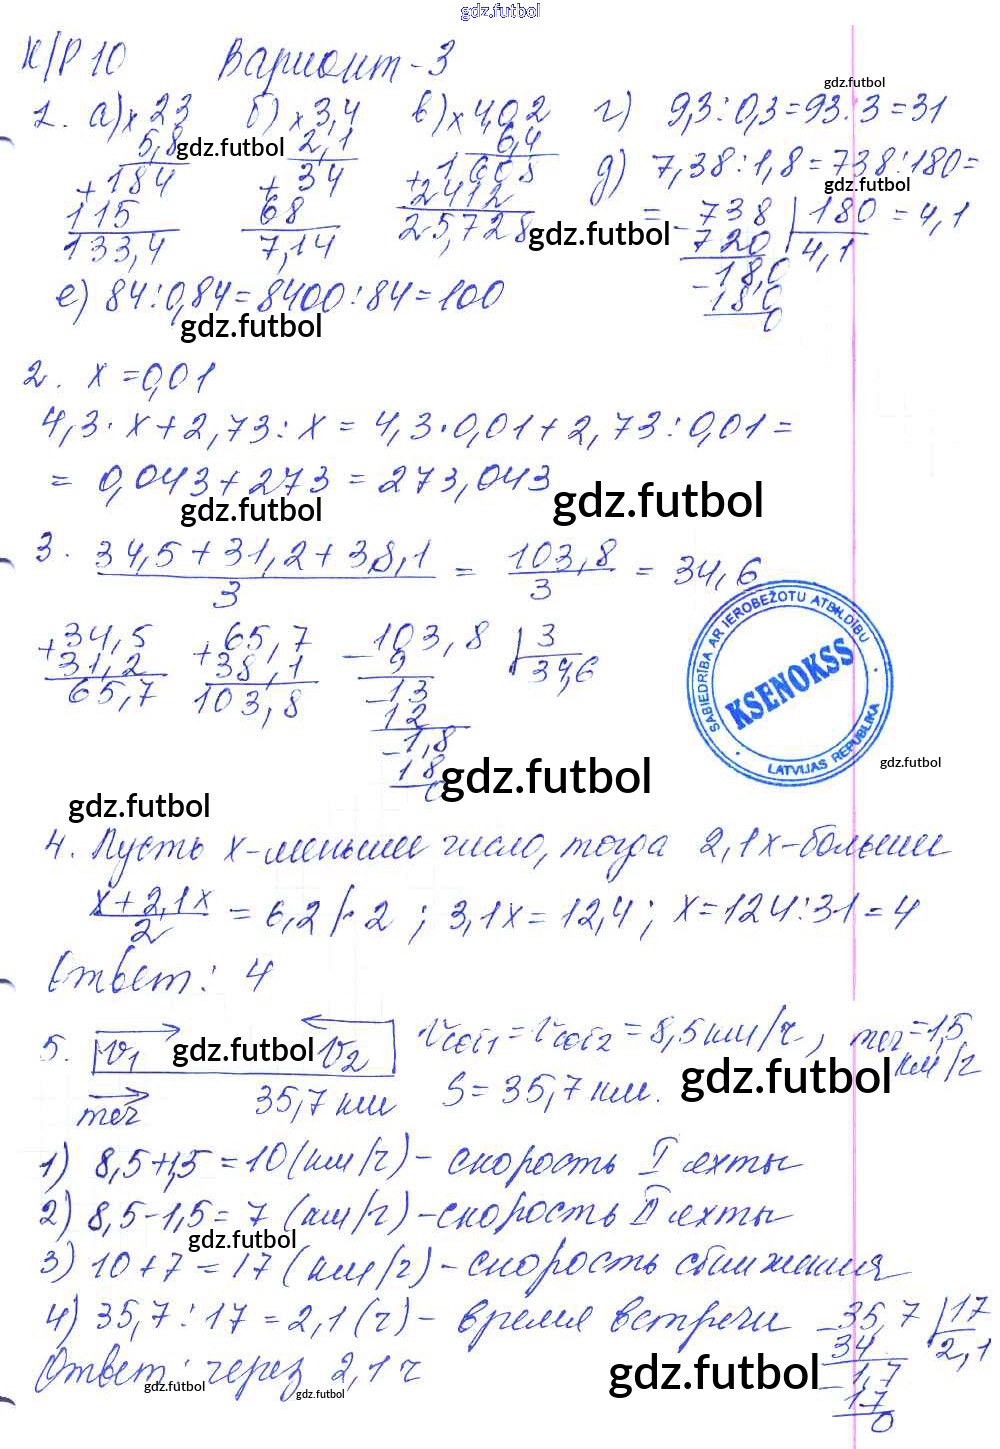 gdz.futbol
К/Р 10 Вариант-3
1. а) × 23 б) × 3,4 в) × 4,02 г) 9,3 : 0,3 = 93 : 3 = 31
5,8 2,1 6,4
+ 184 + 34 + 1608 д) 7,38 : 1,8 = 738 : 180 =
115 68 2412 = - 738 | 180 = 4,1
133,4 7,14 25,728 720 4,1
- 18,0
18,0
0
е) 84 : 0,84 = 8400 : 84 = 100
gdz.futbol
gdz.futbol
gdz.futbol
gdz.futbol
gdz.futbol
2. x = 0,01
4,3 · x + 2,73 : x = 4,3 · 0,01 + 2,73 : 0,01 =
= 0,043 + 273 = 273,043
gdz.futbol
gdz.futbol
3. 34,5 + 31,2 + 38,1 / 3 = 103,8 / 3 = 34,6
+ 34,5 + 65,7 - 103,8 | 3
31,2 38,1 9 34,6
65,7 103,8 - 13
12
- 1,8
1 8
0
SABIEDRĪBA AR IEROBEŽOTU ATBILDĪBU
KSENOKSS
LATVIJAS REPUBLIKA
gdz.futbol
gdz.futbol
gdz.futbol
4. Пусть x-меньшее число, тогда 2,1x-больше
x + 2,1x / 2 = 6,2 | · 2 ; 3,1x = 12,4 ; x = 124 : 31 = 4
Ответ: 4
5. v1 gdz.futbol v2 vсоб1 = vсоб2 = 8,5 км/ч, теч = 1,5 км/ч
теч 35,7 км S = 35,7 км. gdz.futbol
1) 8,5 + 1,5 = 10 (км/ч) - скорость I яхты
2) 8,5 - 1,5 = 7 (км/ч) - скорость II яхты
gdz.futbol
3) 10 + 7 = 17 (км/ч) - скорость сближения
4) 35,7 : 17 = 2,1 (ч) - время встречи - 35,7 | 17
34 2,1
- 1,7
1 7
0
Ответ: через 2,1 ч
gdz.futbol
gdz.futbol
gdz.futbol